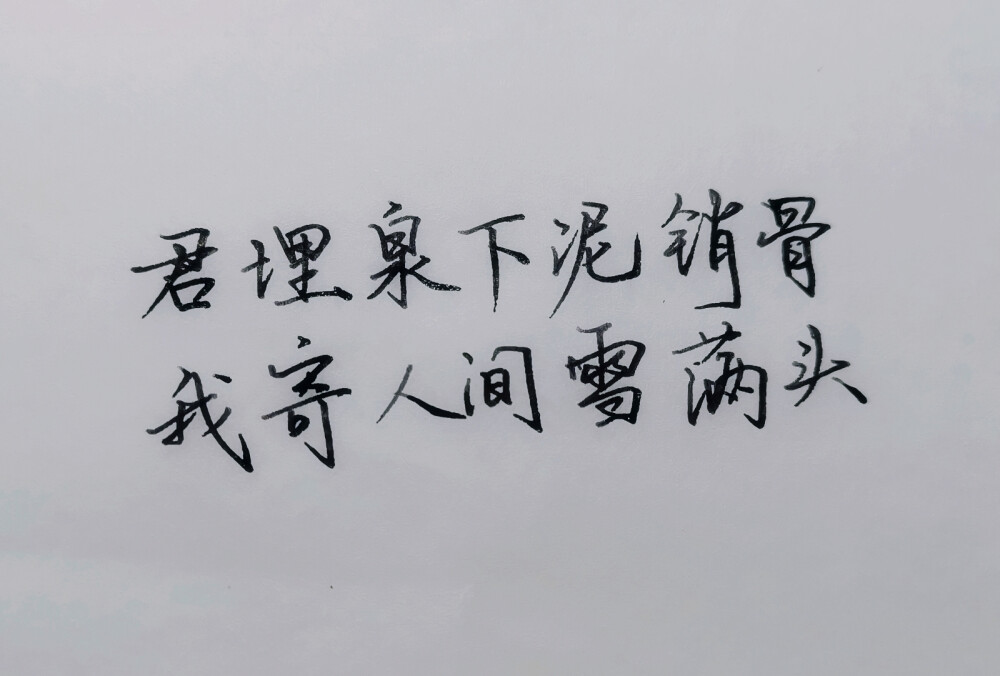 君埋泉下泥销骨
我寄人间雪满头